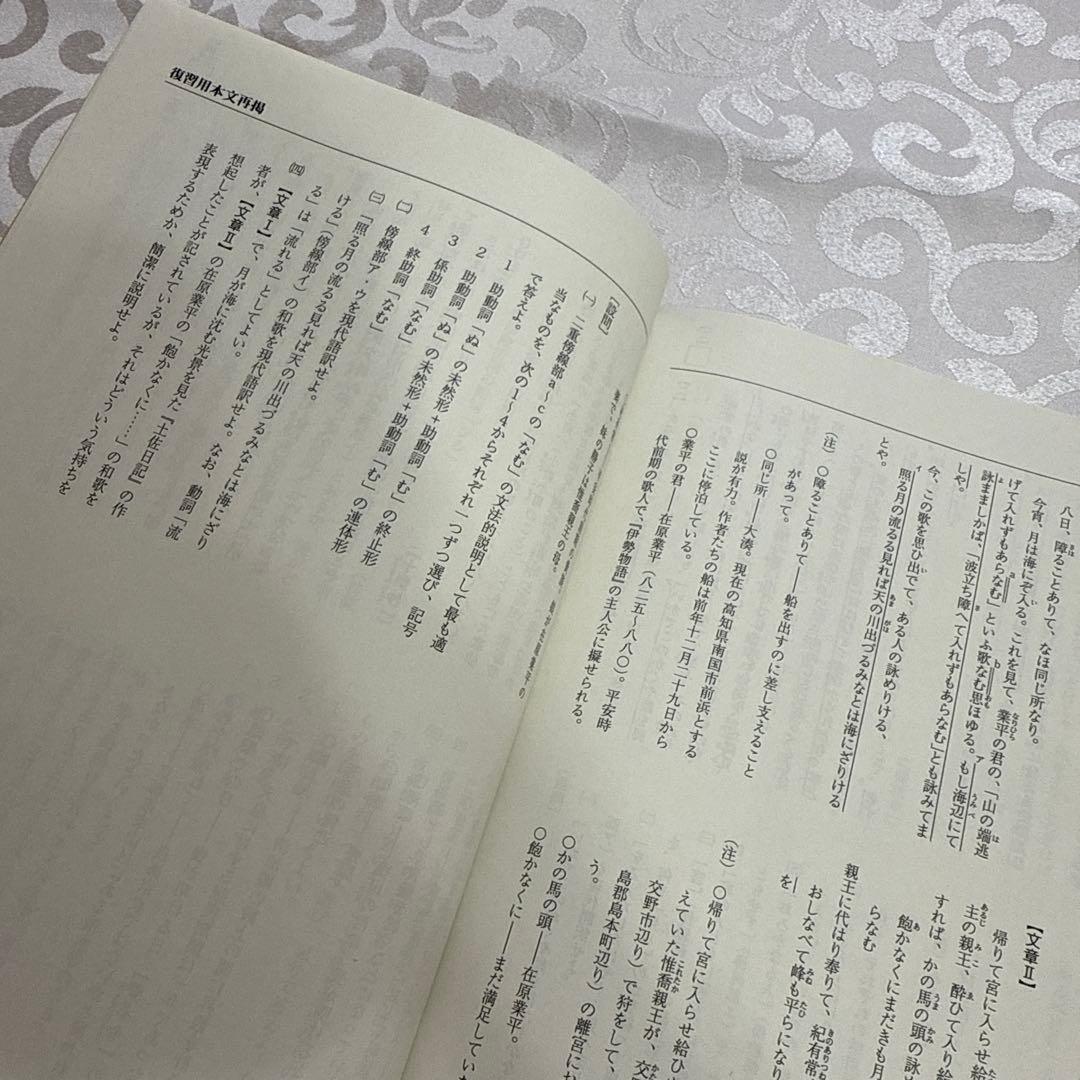 八日、障ることありて、なほ同じ所なり。
今宵、月は海にぞ入る。これを見て、業平の君の、「山の端逃
げて入れずもあらなむ」といふ歌なむ思ほゆる。もし海辺にて
詠まましかば、「波立ち障へて入れずもあらなむ」とも詠みてま
しや。
今、この歌を思ひ出でて、ある人の詠めりける、
照る月の流るる見れば天の川出づるみなとは海にざりける
とや。
(注) ○障ることありて――船を出すのに差し支えること
があって。
○同じ所――大湊。現在の高知県南国市前浜とする
説が有力。作者たちの船は前年十二月二十九日から
ここに停泊している。
○業平の君――在原業平(八二五~八八〇)。平安時
代前期の歌人で、『伊勢物語』の主人公に擬せられる。
【文章Ⅱ】
帰りて宮に入らせ給
主の親王、酔ひて入り給
すれば、かの馬の頭の詠
飽かなくにまだきも月
らなむ
親王に代はり奉りて、紀有常
おしなべて峰も平らになり
を
(注) ○帰りて宮に入らせ給ひ
えていた惟喬親王が、交
交野市辺り)で狩をして、
島郡島本町辺り)の離宮にお
う。
○かの馬の頭――在原業平。
○飽かなくに――まだ満足してい
〔設問〕
㈠ 二重傍線部a~cの「なむ」の文法的説明として最も適
当なものを、次の1~4からそれぞれ一つずつ選び、記号
で答えよ。
1 助動詞「ぬ」の未然形+助動詞「む」の終止形
2 助動詞「ぬ」の未然形+助動詞「む」の連体形
3 係助詞「なむ」
4 終助詞「なむ」
㈡ 傍線部ア・ウを現代語訳せよ。
㈢ 「照る月の流るる見れば天の川出づるみなとは海にざり
ける」(傍線部イ)の和歌を現代語訳せよ。なお、動詞「流
る」は「流れる」としてよい。
㈣ 【文章Ⅰ】で、月が海に沈む光景を見た『土佐日記』の作
者が、【文章Ⅱ】の在原業平の「飽かなくに……」の和歌を
想起したことが記されているが、それはどういう気持ちを
表現するためか、簡潔に説明せよ。
復習用本文再掲